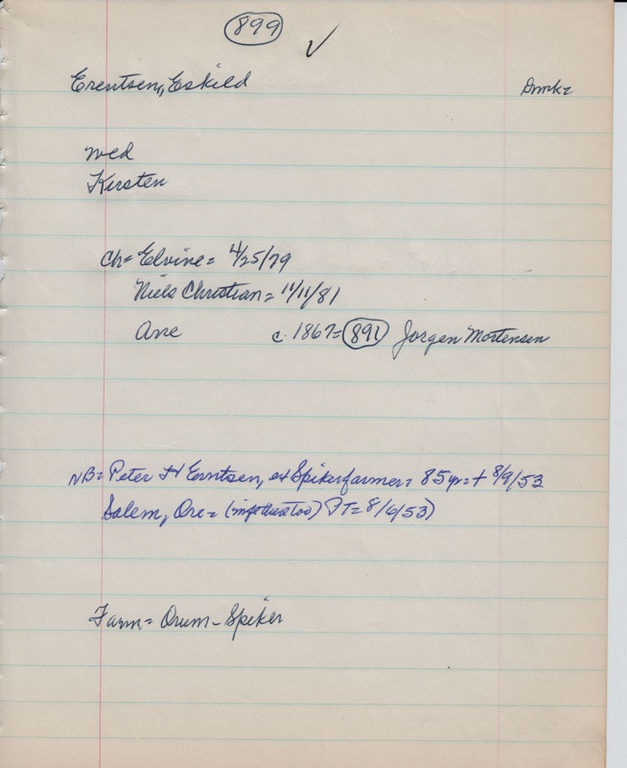 899 ✓
Erentsen, Eskild Dmk=
wed
Kirsten
Ch= Elvine= 4/25/79
Niels Christian= 11/11/81
Ane c. 1867= 891 Jorgen Mortensen
NB= Peter H Erntsen, ex Spiker farmer= 85 yr= + 8/9/53
Salem, Ore= 8/6/53)
Farm= Orum - Spiker